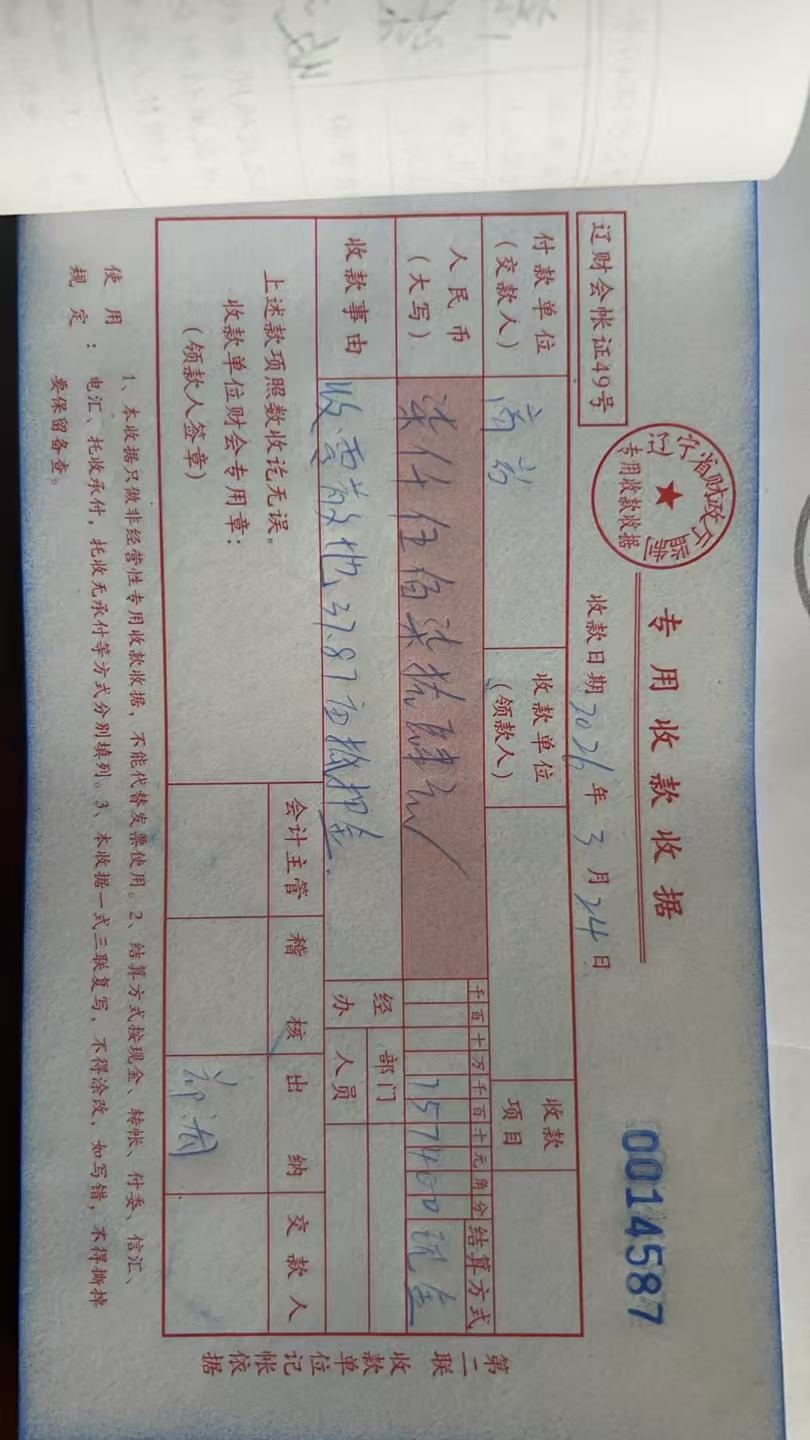 专用收款收据
0014587
辽财会帐证49号
辽宁省财政厅监制
专用收款收据
收款日期2026年3月24日
付款单位
(交款人)
收款单位
(领款人)
收款
项目
人民币
(大写)
柒仟伍佰柒拾肆元
千百十万千百十元角分
757400
结算方式
现金
收款事由
地37.87亩抵押金.
经办
部门
人员
上述款项照数收讫无误。
收款单位财会专用章:
(领款人签章)
会计主管
稽核
出纳
交款人
第二联 收款单位记帐依据
使用规定:
1、本收据只做非经营性专用收款收据，不能代替发票使用。2、结算方式按现金、转帐、付委、信汇、
电汇、托收承付，托收无承付等方式分别填列。3、本收据一式三联复写，不得涂改，如写错，不得撕掉
要保留备查。